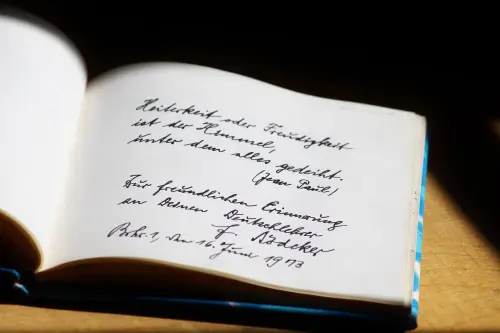 Heiterkeit oder Freudigkeit
ist der Himmel,
unter dem alles gedeiht.
(Jean Paul)
Zur freundlichen Erinnerung
an Deinen Deutschlehrer
F. Bödeker
den 16. Juni 1973